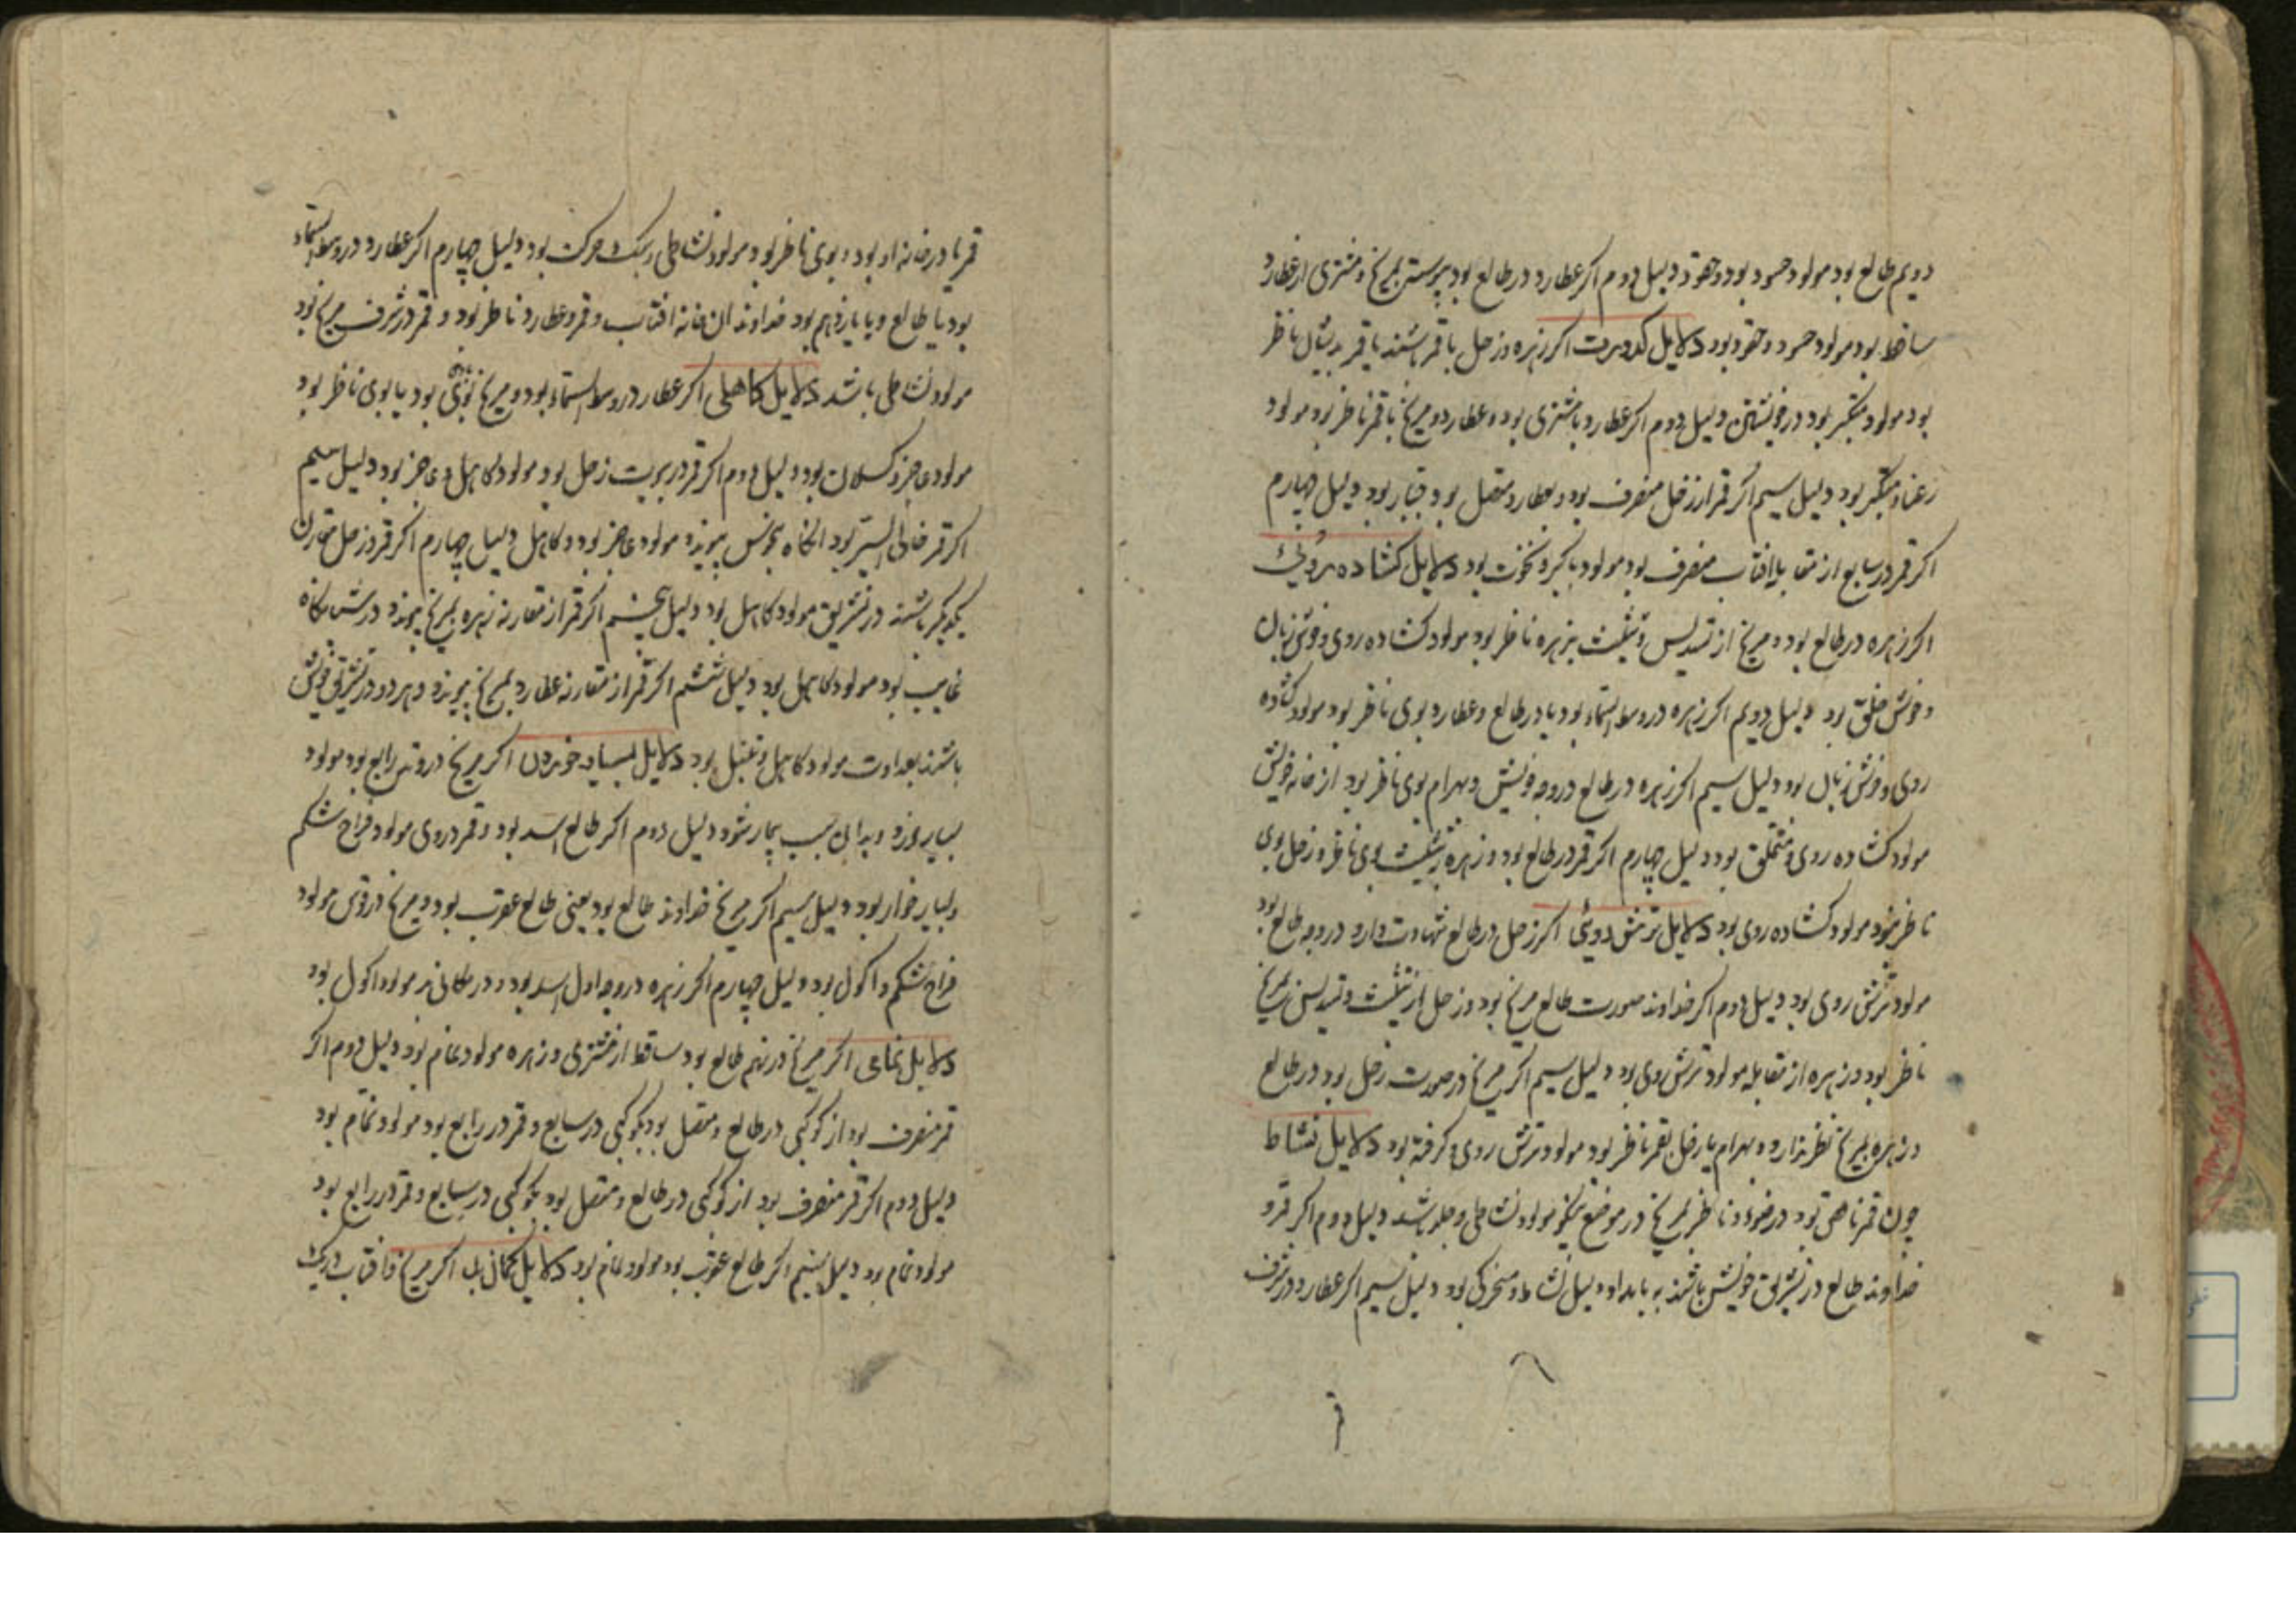 دویم طالع بود مولود حسود بود و حقود دلیل دوم اکر عطارد در طالع بود پیوسته بمریخ و مشتری از عطارد
ساقط بود مولود حسود و حقود بود دلایل اکر زهره و زحل با قمر باشند یا قمر بدیشان ناظر
بود مولود متکبر بود در خویشتن دلیل دوم اکر عطارد با مشتری بود و عطارد و مریخ با قمر ناظر بود مولود
رعنا و متکبر بود دلیل سیم اکر قمر از زحل منصرف بود و بعطارد متصل بود بود دلیل چهارم
اکر قمر در سابع از مقابله افتاب منصرف بود مولود با کبر و نخوت بود دلایل کشاده روئی
اکر زهره در طالع بود و مریخ از تسدیس و تثلیث بزهره ناظر بود مولود کشاده روی و خوش زبان
و خوش خلق بود دلیل دویم اکر زهره در وسط السماء بود یا در طالع و عطارد بوی ناظر بود مولود کشاده
روی و خوش زبان بود دلیل سیم اکر زهره در طالع در وجه خویش و بهرام بوی ناظر بود از خانه خویش
مولود کشاده روی و متخلق بود دلیل چهارم اکر قمر در طالع بود و زهره بتثلیث بوی ناظر و زحل بوی
ناظر نبود مولود کشاده روی بود دلایل ترش روئی اکر زحل در طالع شهادت دارد در وجه طالع بود
مولود ترش روی بود دلیل دوم اکر خداوند صورت طالع مریخ بود و زحل از تثلیث و تسدیس بمریخ
ناظر بود و زهره از مقابله مولود ترش روی بود دلیل سیم اکر مریخ در صورت زحل بود در طالع
و زهره بمریخ نظر ندارد و بهرام یا زحل بقمر ناظر بود مولود ترش روی و کرفته بود دلایل نشاط
چون قمر ناقص بود در ضوء و ناظر بمریخ در موضع نیکو مولود نشاطی و جلد باشد دلیل دوم اکر قمر و
خداوند طالع در تشریق خویش باشند به بامداد دلیل نشاط و متحرکی بود دلیل سیم اکر عطارد در شرف
قمر یا در خانه او بود و بوی ناظر بود مولود نشاطی و سبک حرکت بود دلیل چهارم اکر عطارد در وسط السماء
بود یا طالع و یا یازدهم بود خداوند ان خانه افتاب و قمر و عطارد ناظر بود و قمر در شرف مریخ بود
مولود نشاطی باشد دلایل کاهلی اکر عطارد در وسط السماء بود و مریخ بود یا بوی ناظر بود
مولود عاجز و کسلان بود دلیل دوم اکر قمر در بیوت زحل بود مولود کاهل و عاجز بود دلیل سیم
اکر قمر خالی السیر بود انکاه بنحوس پیوندد مولود عاجز بود و کاهل دلیل چهارم اکر قمر و زحل مقارن
یکدیکر باشند در تشریق مولود کاهل بود دلیل پنجم اکر قمر از مقارنه زهره بمریخ پیوندد در شبانکاه
غایب بود مولود کاهل بود دلیل ششم اکر قمر از مقارنه عطارد بمریخ پیوندد و هر دو در تشریق خویش
باشند بعداوت مولود کاهل و تنبل بود دلایل بسیار خوردن اکر مریخ در وتد رابع بود مولود
بسیار خورد و بدان سبب بیمار شود دلیل دوم اکر طالع اسد بود و قمر در وی مولود فراخ شکم
و بسیار خوار بود دلیل سیم اکر مریخ خداوند طالع بود یعنی طالع عقرب بود و مریخ در قوس مولود
فراخ شکم و اکول بود دلیل چهارم اکر زهره در وجه اول اسد بود و در مکان نر مولود اکول بود
دلایل نمامی اکر مریخ در نهم طالع بود ساقط از مشتری و زهره مولود نمام بود دلیل دوم اکر
قمر منصرف بود از کوکبی در طالع و متصل بود بکوکبی در سابع و قمر در رابع بود مولود نمام بود
دلیل دوم اکر قمر منصرف بود از کوکبی در طالع و متصل بود بکوکبی در سابع و قمر در رابع بود
مولود نمام بود دلیل سیم اکر طالع عقرب بود مولود نمام بود دلایل اکر مریخ و افتاب در یک